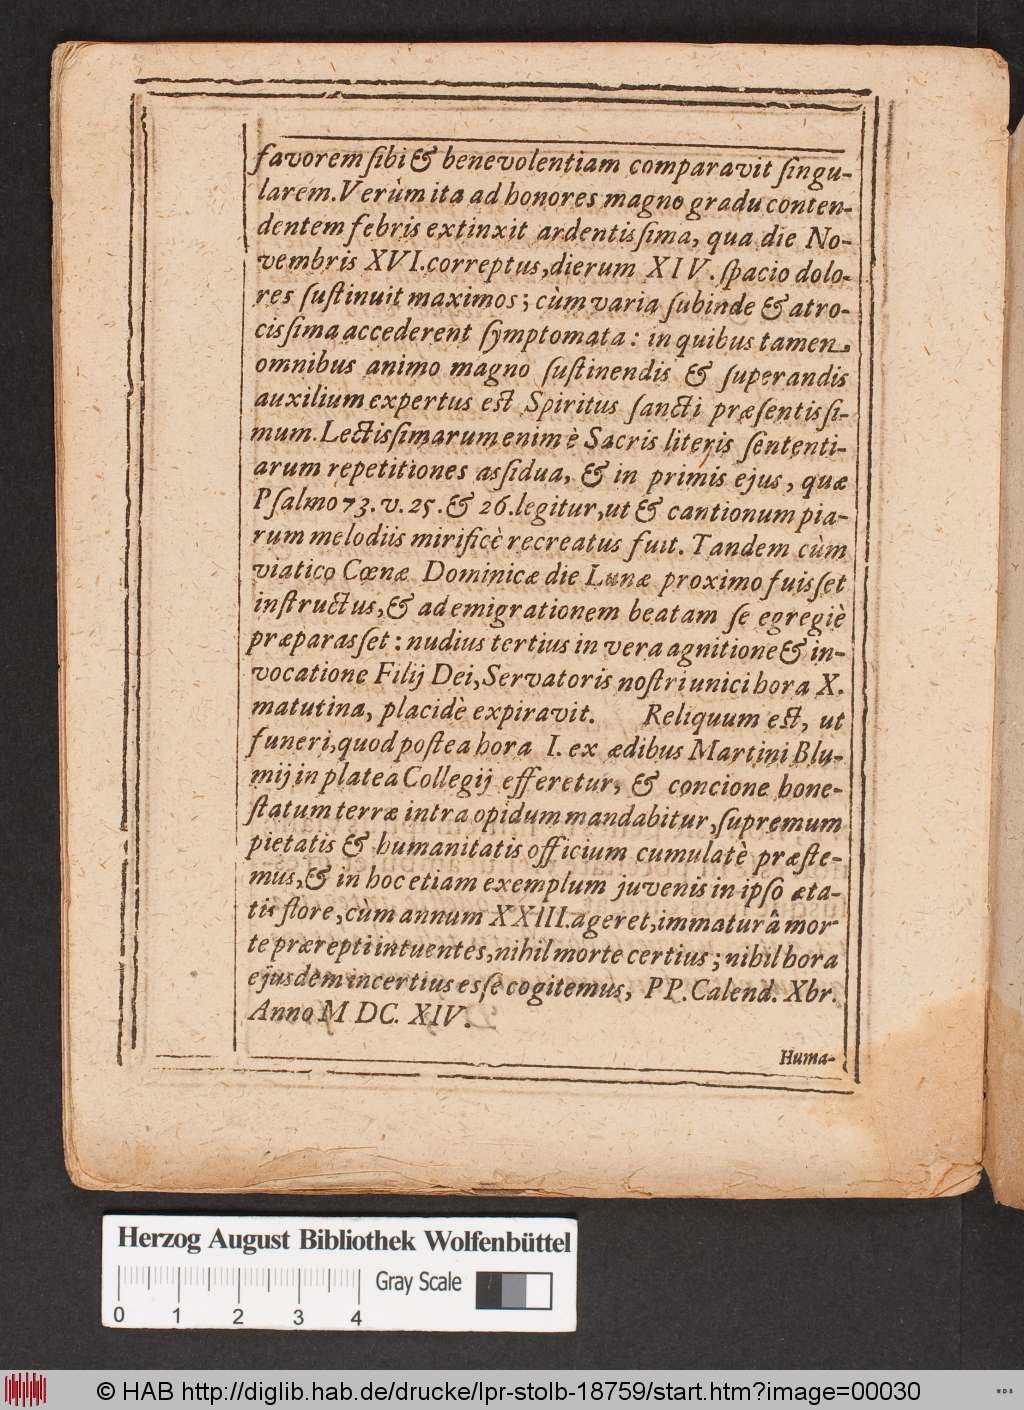 favorem ſibi & benevolentiam comparavit ſingu-
larem. Verùm ita ad honores magno gradu conten-
dentem febris extinxit ardentisſima, qua die No-
vembris XVI. correptus, dierum XIV. ſpacio dolo-
res ſuſtinuit maximos; cùm varia ſubinde & atro-
cisſima accederent ſymptomata: in quibus tamen,
omnibus animo magno ſuſtinendis & ſuperandis
auxilium expertus est Spiritus ſancti præſentisſi-
mum. Lectisſimarum enim è Sacris literis ſententi-
arum repetitiones asſidua, & in primis ejus, quæ
Pſalmo 73. v. 25. & 26. legitur, ut & cantionum pia-
rum melodiis mirificè recreatus fuit. Tandem cùm
viatico Cœnæ Dominicæ die Lunæ proximo fuisſet
inſtructus, & ad emigrationem beatam ſe egregiè
præparasſet: nudius tertius in vera agnitione & in-
vocatione Filij Dei, Servatoris noſtri unici hora X.
matutina, placidè expiravit. Reliquum est, ut
funeri, quod poſtea hora I. ex ædibus Martini Blu-
mij in platea Collegij efferetur, & concione hone-
ſtatum terræ intra opidum mandabitur, ſupremum
pietatis & humanitatis officium cumulatè præſte-
mus, & in hoc etiam exemplum juvenis in ipſo æta-
tis flore, cùm annum XXIII. ageret, immaturâ mor
te præreptiintuentes, nihil morte certius; nihil hora
ejusdem incertius esſe cogitemus, PP. Calend. Xbr.
Anno M DC. XIV.
Huma-
Herzog August Bibliothek Wolfenbüttel
Gray Scale
0 1 2 3 4
© HAB http://diglib.hab.de/drucke/lpr-stolb-18759/start.htm?image=00030